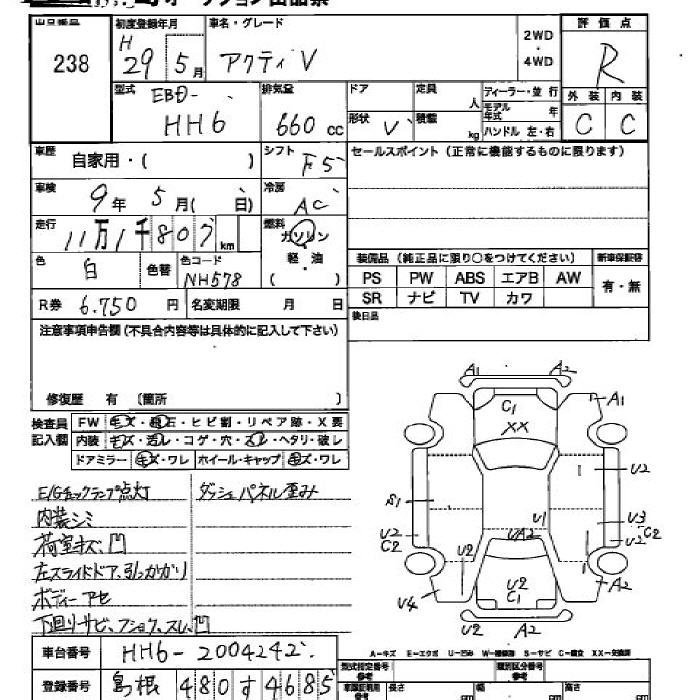 出品番号 238
初度登録年月 H 29 5月
車名・グレード アクティ V
2WD・4WD
評価点 R
外装 内装
C C
型式 EBD- HH6
排気量 660 cc
ドア
形状 V
定員 人
積載 kg
ディーラー・並行
モデル年式 年
ハンドル 左・右
車歴 自家用・( )
シフト F5
セールスポイント（正常に機能するものに限ります）
車検 9年 5月( 日)
冷房 AC
走行 11万1千807 km
燃料 ガソリン 軽・油 ( )
色 白 色替 色コード NH578
装備品（純正品に限り○をつけてください） 新車保証書
PS PW ABS エアB AW 有・無
SR ナビ TV カワ
R券 6.750 円 名変期限 月 日
後日品
注意事項申告欄（不具合内容等は具体的に記入して下さい）
修復歴 有 〔箇所 〕
検査員記入欄
FW キズ・飛石・ヒビ割・リペア跡・X要
内装 キズ・汚レ・コゲ・穴・スレ・ヘタリ・破レ
ドアミラー キズ・ワレ ホイール・キャップ キズ・ワレ
E/Gチェックランプ点灯 ダッシュパネル歪み
内装シミ
荷室キズ、凹
左スライドドア、引っかかり
ボディーアセ
下廻りサビ、フショク、スレ、凹
A1 A2
C1 A1
XX
U2
S1
U1 U3
U2 UA2 U2 C2
C2 U2
U2 A2
U4 C1
U2 A2
A－キズ E－エクボ U－凹ミ W－補修跡 S－サビ C－腐食 XX－交換済
車台番号 HH6-2004242
型式指定番号 類別区分番号
登録番号 島根 480す4685
長さ cm 幅 cm 高さ cm